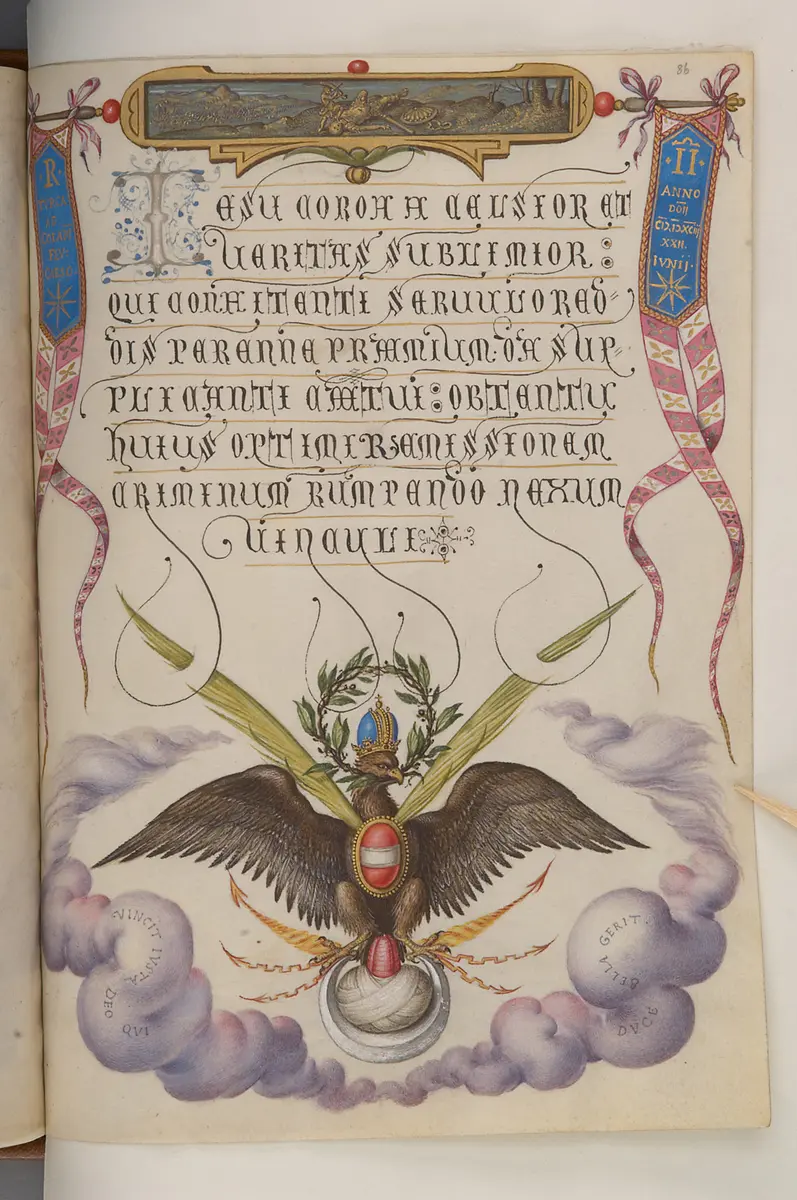 86
·R·
TVRCA
AD
FLV:
CAESO.
·II·
ANNO
DÑI
CIƆIƆXCIII
XXII.
IVNIJ.
IESU CORONA CELSIOR ET
VERITAS SUBLIMIOR:
QUI CONFITENTI SERVULO RED=
DIS PERENNE PRÆMIUM: DA SUP=
PLICANTI CÆTUI: OBTENTU
HUIUS OPTIMI REMISSIONEM
CRIMINUM RUMPENDO NEXUM
VINCULI
VINCIT IVSTA
DEO QVI
GERIT. BELLA
DVCE